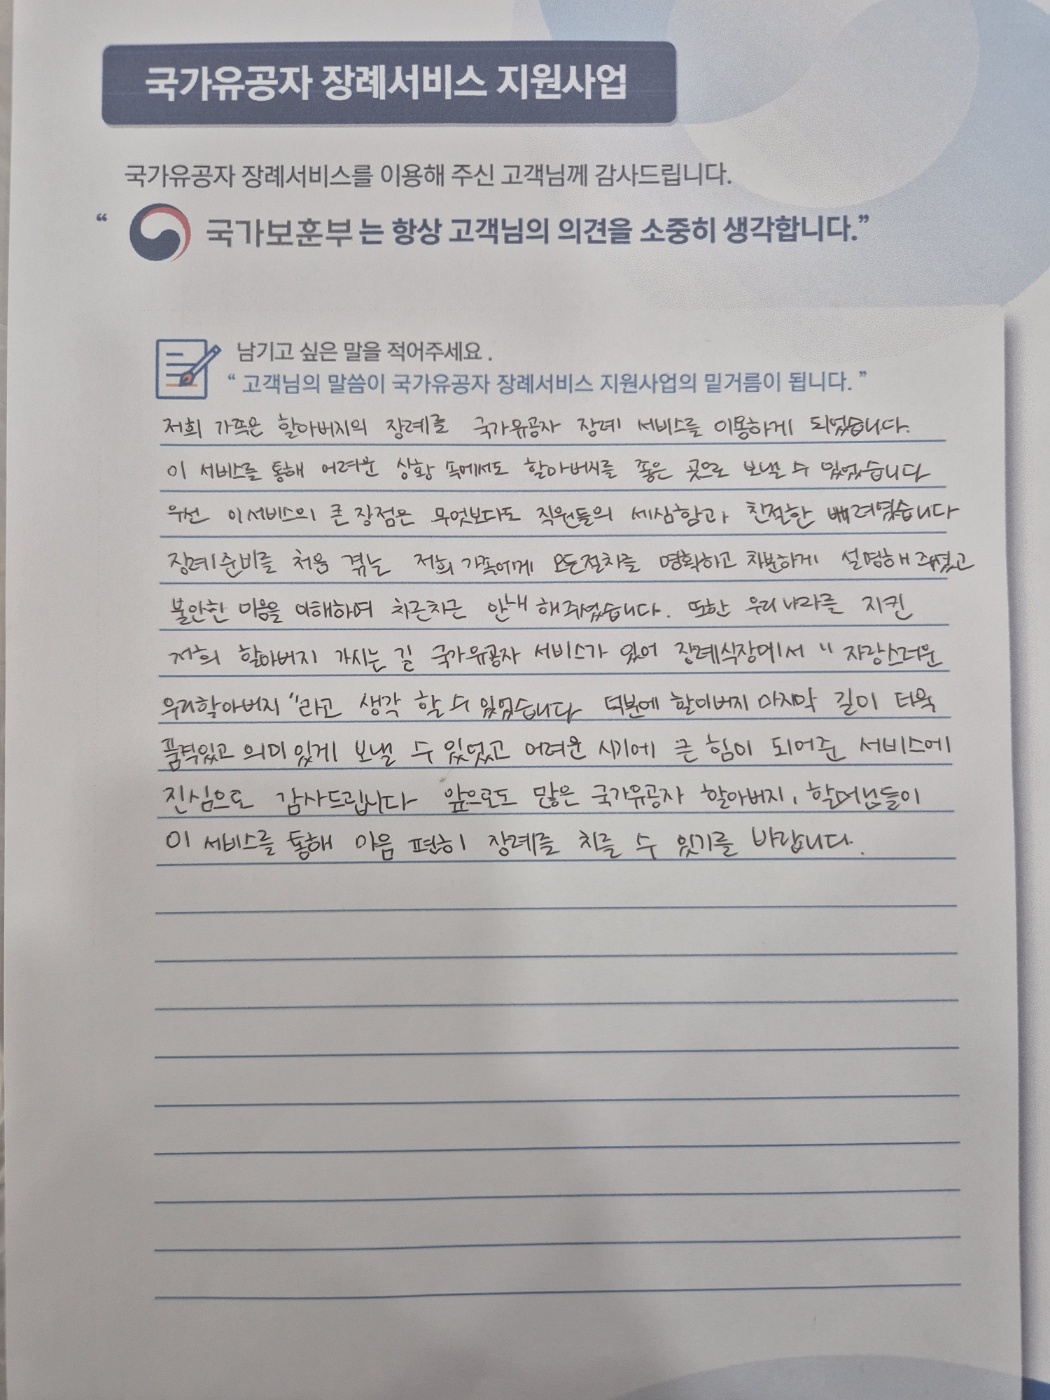 국가유공자 장례서비스 지원사업
국가유공자 장례서비스를 이용해 주신 고객님께 감사드립니다.
“ 국가보훈부 는 항상 고객님의 의견을 소중히 생각합니다.”
남기고 싶은 말을 적어주세요 .
“ 고객님의 말씀이 국가유공자 장례서비스 지원사업의 밑거름이 됩니다. ”
저희 가족은 할아버지의 장례를 국가유공자 장례 서비스를 이용하게 되었습니다.
이 서비스를 통해 어려운 상황 속에서도 할아버지를 좋은 곳으로 보낼 수 있었습니다
우선 이서비스의 큰 장점은 무엇보다도 직원들의 세심함과 친절한 배려였습니다
장례준비를 처음 겪는 저희 가족에게 모든절차를 명확하고 차분하게 설명해 주셨고
불안한 마음을 이해하며 차근차근 안내 해주셨습니다. 또한 우리 나라를 지킨
저희 할아버지 가시는 길 국가유공자 서비스가 있어 장례식장에서 “ 자랑스러운
우리할아버지 ”라고 생각 할 수 있었습니다 덕분에 할아버지 마지막 길이 더욱
품격있고 의미 있게 보낼 수 있었고 어려운 시기에 큰 힘이 되어준 서비스에
진심으로 감사드립니다 앞으로도 많은 국가유공자 할아버지, 할머님들이
이 서비스를 통해 마음 편히 장례를 치를 수 있기를 바랍니다.